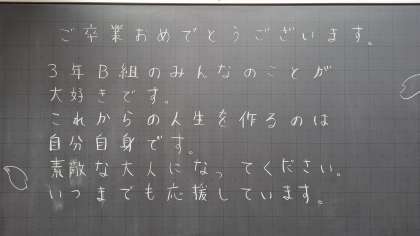 ご卒業おめでとうございます。
3年B組のみんなのことが
大好きです。
これからの人生を作るのは
自分自身です。
素敵な大人になってください。
いつまでも応援しています。